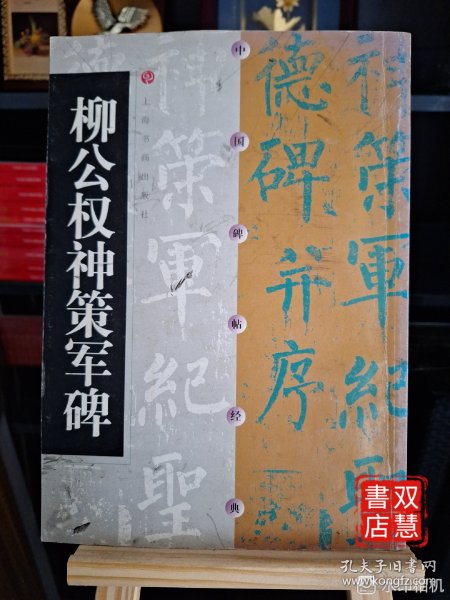 柳公权神策军碑
上海书画出版社
中国碑帖经典
神策軍紀聖
德碑并序
神策軍紀聖
双慧
書店
孔夫子旧书网
www.kongfz.com
水印相机